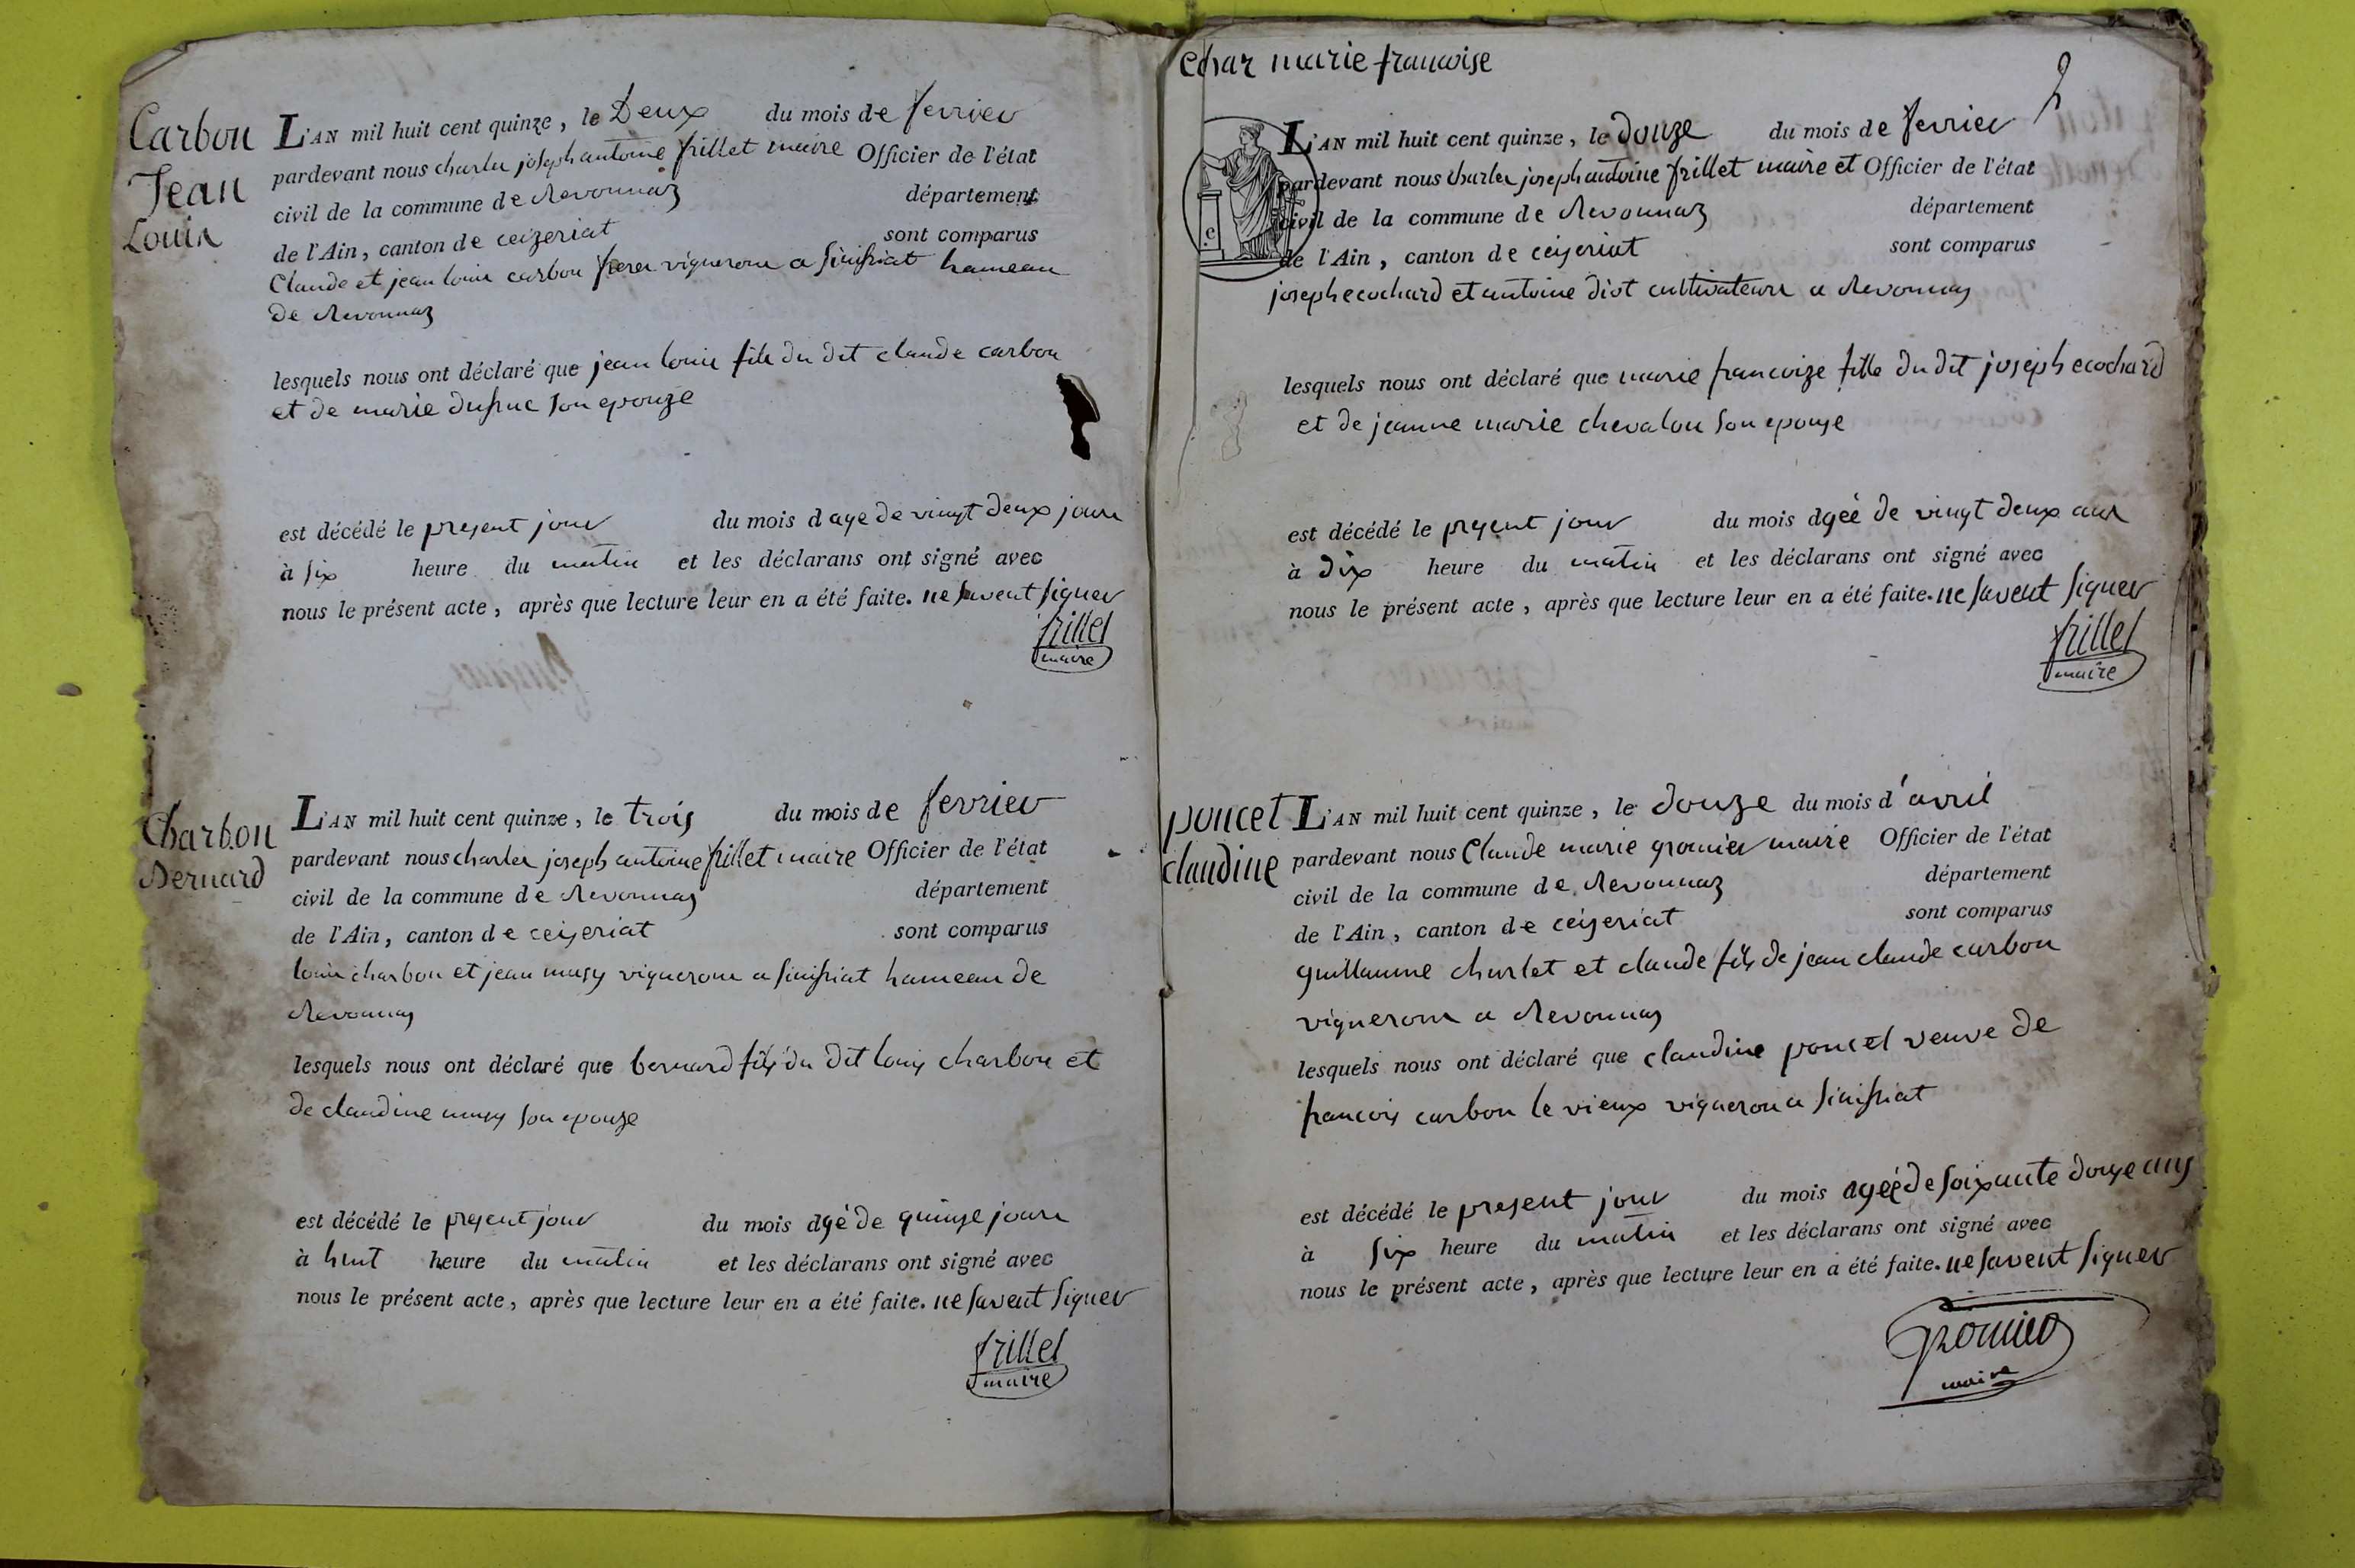 Carbon
Jean
Louis
L'AN mil huit cent quinze, le Deux du mois de fevrier
pardevant nous charles joseph antoine frillet maire Officier de l'état
civil de la commune de Revonnaz département
de l'Ain, canton de ceizeriat sont comparus
Claude et jean louis carbon freres vignerons a
hameau
de Revonnaz
lesquels nous ont déclaré que jean louis fils du dit claude carbon
et de marie son epouze
est décédé le present jour du mois d age de vingt deux jours
à six heure du matin et les déclarans ont signé avec
nous le présent acte, après que lecture leur en a été faite. ne savent signer
frillet
maire
Charbon
Bernard
L'AN mil huit cent quinze, le trois du mois de fevrier
pardevant nous charles joseph antoine frillet maire Officier de l'état
civil de la commune de Revonnas département
de l'Ain, canton de ceyseriat sont comparus
louis charbon et jean musy vignerons a hameau de
Revonnas
lesquels nous ont déclaré que bernard fils du dit louis charbon et
de claudine musy son epouze
est décédé le present jour du mois dgé de quinze jours
à huit heure du matin et les déclarans ont signé avec
nous le présent acte, après que lecture leur en a été faite. ne savent signer
frillet
maire
marie francoise
2
L'AN mil huit cent quinze, le douze du mois de fevrier
pardevant nous charles joseph antoine frillet maire et Officier de l'état
civil de la commune de Revonnaz département
de l'Ain, canton de ceyseriat sont comparus
joseph ecochard et antoine diot cultivateurs a Revonnas
lesquels nous ont déclaré que marie francoize fille du dit joseph ecochard
et de jeanne marie chevalon son epouse
est décédé le present jour du mois dgée de vingt deux ans
à dix heure du matin et les déclarans ont signé avec
nous le présent acte, après que lecture leur en a été faite. ne savent signer
frillet
maire
poncet
claudine
L'AN mil huit cent quinze, le douze du mois d'avril
pardevant nous Claude marie gromier maire Officier de l'état
civil de la commune de Revonnaz département
de l'Ain, canton de ceyseriat sont comparus
guillaume churlet et claude fils de jean claude carbon
vignerons a Revonnas
lesquels nous ont déclaré que claudine poncet veuve de
francois carbon le vieux vigneron a
est décédé le present jour du mois agée de soixante douze ans
à six heure du matin et les déclarans ont signé avec
nous le présent acte, après que lecture leur en a été faite. ne savent signer
Gromier
maire